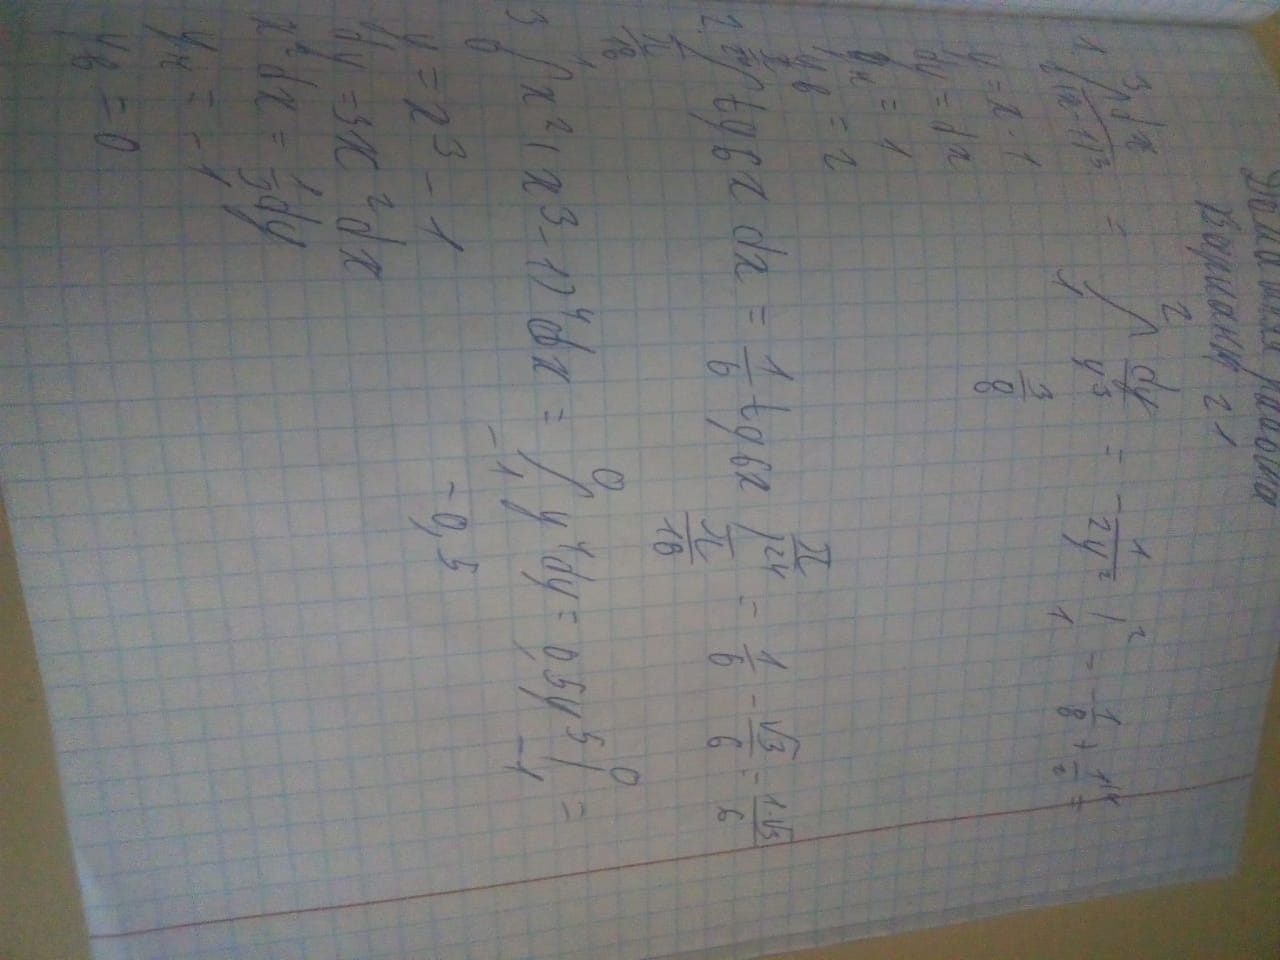 Домашняя работа
Вариант 21
1 ∫₂³ dx/(x-1)³ = ∫₁² dy/y³ = -1/2y² |₁² = -1/8 + 1/2 =
y = x-1 3/8
dy = dx
yн = 1
yв = 2
2. ∫ tg6x dx = 1/6 tg6x | π/24 π/18 = 1/6 - √3/6 = 1-√3/6
π/18
3 ∫₀¹ x²(x³-1)⁴dx = ∫₋₁⁰ y⁴dy = 0,5y⁵ |₋₁⁰ =
y = x³ - 1 -0,5
dy = 3x²dx
x²dx = 1/3dy
yн = -1
yв = 0